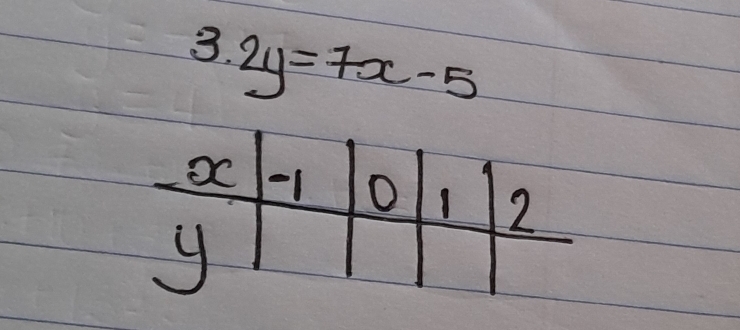 3.2y=7x-5
x -1 0 1 2
y